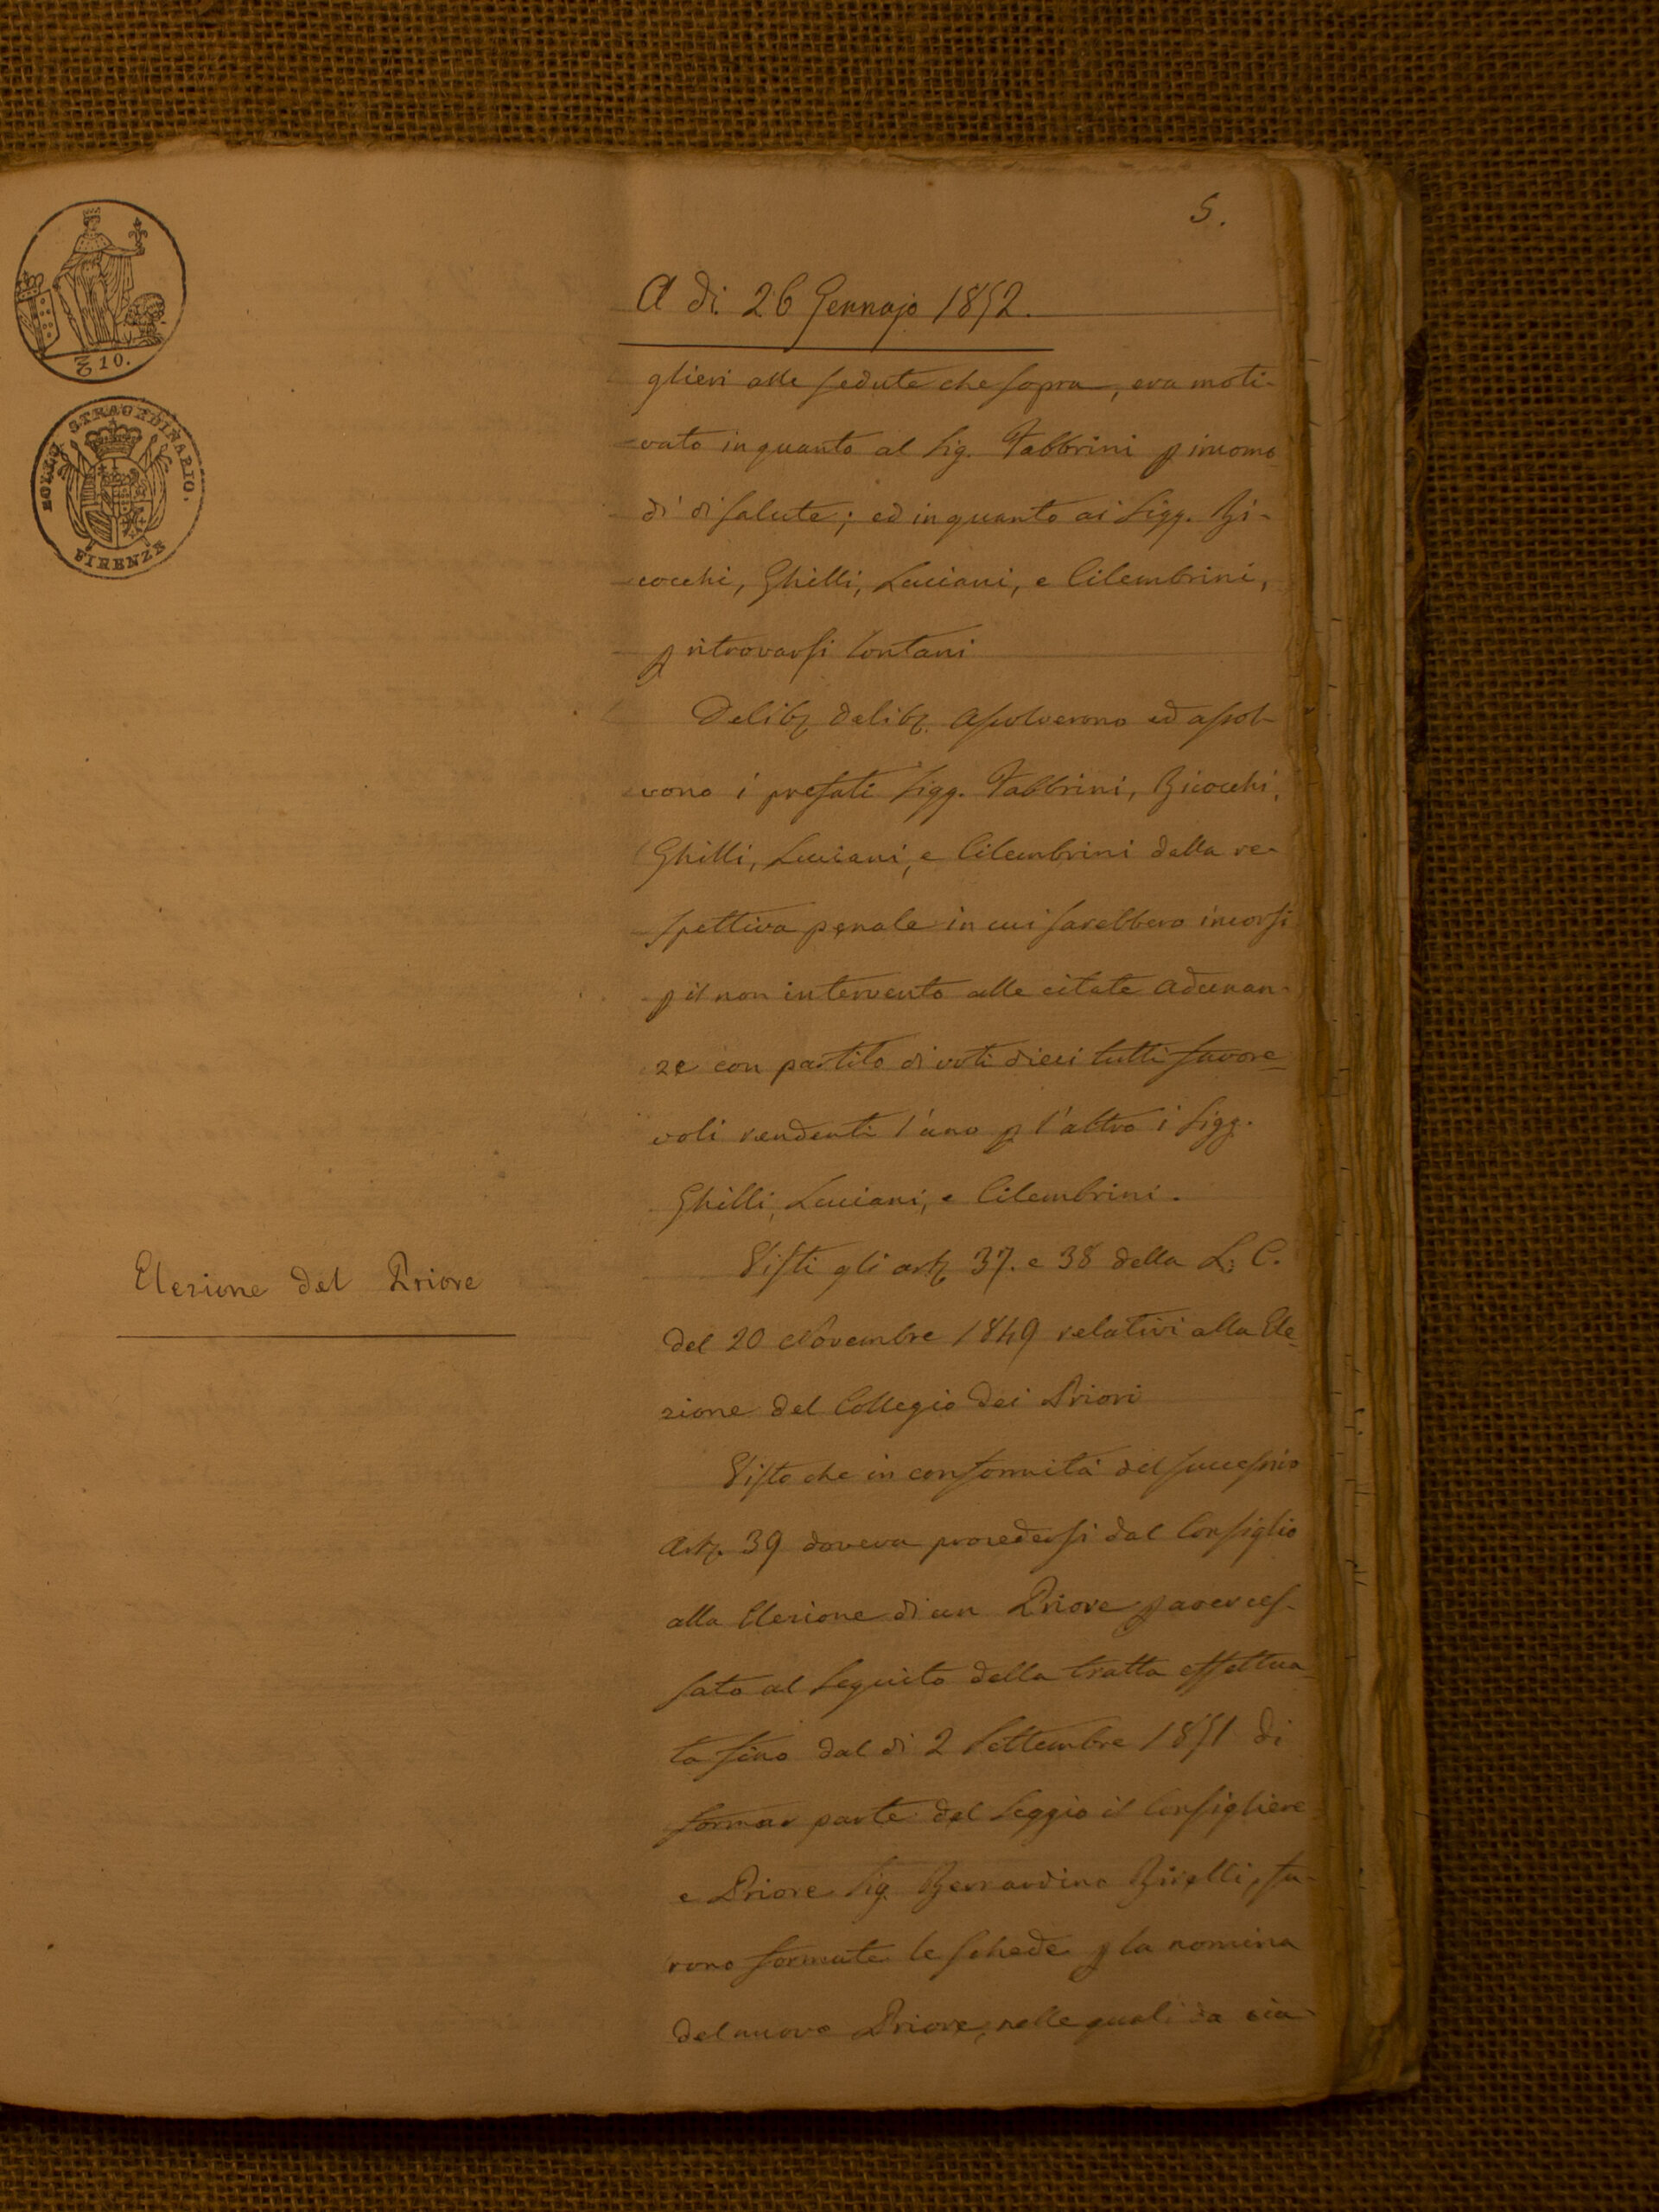 5.
10.
BOLLO STRAORDINARIO.
FIRENZE
A di 26 Gennajo 1852.
glieri alle sedute che sopra, era moti-
vato inquanto al Sig. Fabbrini p incomo
di di salute; ed inquanto ai Sigg. Bi-
cocchi, Ghilli, Luciani, e Cilembrini,
p ritrovarsi lontani
Delib. delib. assolverono ed assol-
vono i prefati Sigg. Fabbrini, Bicocchi,
Ghilli, Luciani, e Cilembrini dalla re-
spettiva penale in cui sarebbero incorsi
p il non intervento alle citate adunan-
ze con partito di voti dieci tutti favore=
voli rendenti l'uno p l'altro i Sigg.
Ghilli, Luciani, e Cilembrini.
Elezione del Priore
Visti gli art. 37. e 38 della L. C.
del 20 Novembre 1849 relativi alla Ele=
zione del Collegio dei Priori
Visto che in conformità del successivo
Art. 39 doveva procedersi dal Consiglio
alla Elezione di un Priore p aver ces-
sato al seguito della tratta effettua
ta fino dal di 2 Settembre 1851 di
formar parte del Seggio il Consigliere
e Priore Sig. Bernardino Birelli, fu-
rono formate le schede p la nomina
del nuovo Priore, nelle quali da cia-